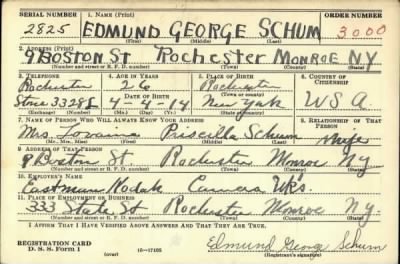 SERIAL NUMBER 1. NAME (Print) ORDER NUMBER
2825 EDMUND GEORGE SCHUM 3000
(First) (Middle) (Last)
2. ADDRESS (Print)
9 BOSTON St Rochester MONROE N.Y
(Number and street or R. F. D. number) (Town) (County) (State)
3. TELEPHONE 4. AGE IN YEARS 5. PLACE OF BIRTH 6. COUNTRY OF CITIZENSHIP
Rochester 26 Rochester
DATE OF BIRTH (Town or county)
Stone 3328 4-4-14 New York U S A
(Exchange) (Number) (Mo.) (Day) (Yr.) (State or country)
7. NAME OF PERSON WHO WILL ALWAYS KNOW YOUR ADDRESS 8. RELATIONSHIP OF THAT PERSON
Mrs. Lovaine Priscilla Schum Wife
(Mr., Mrs., Miss) (First) (Middle) (Last)
9. ADDRESS OF THAT PERSON
9 Boston St Rochester Monroe N.Y.
(Number and street or R. F. D. number) (Town) (County) (State)
10. EMPLOYER'S NAME
Eastman Kodak Camera Wks.
11. PLACE OF EMPLOYMENT OR BUSINESS
333 State St Rochester Monroe N.Y
(Number and street or R. F. D. number) (Town) (County) (State)
I AFFIRM THAT I HAVE VERIFIED ABOVE ANSWERS AND THAT THEY ARE TRUE.
REGISTRATION CARD
D. S. S. Form 1 (over) 16-17105 Edmund George Schum
(Registrant's signature)